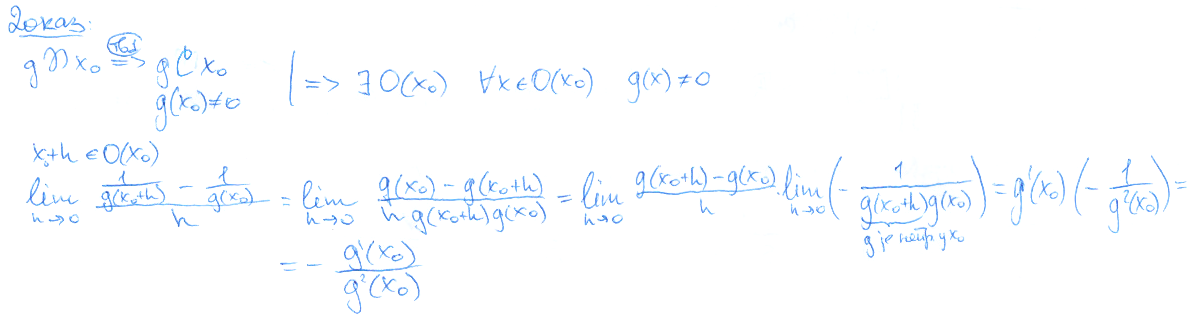 Доказ:
g D x₀ =T61=> g C x₀ | => ∃ O(x₀) ∀x∈O(x₀) g(x)≠0
g(x₀)≠0
x₀+h ∈ O(x₀)
lim_{h→0} (1/g(x₀+h) - 1/g(x₀))/h = lim_{h→0} (g(x₀) - g(x₀+h))/(h g(x₀+h)g(x₀)) = lim_{h→0} (g(x₀+h)-g(x₀))/h · lim_{h→0} (- 1/(g(x₀+h)g(x₀))) = g'(x₀) (- 1/g²(x₀)) =
g је непр у x₀
= - g'(x₀)/g²(x₀)